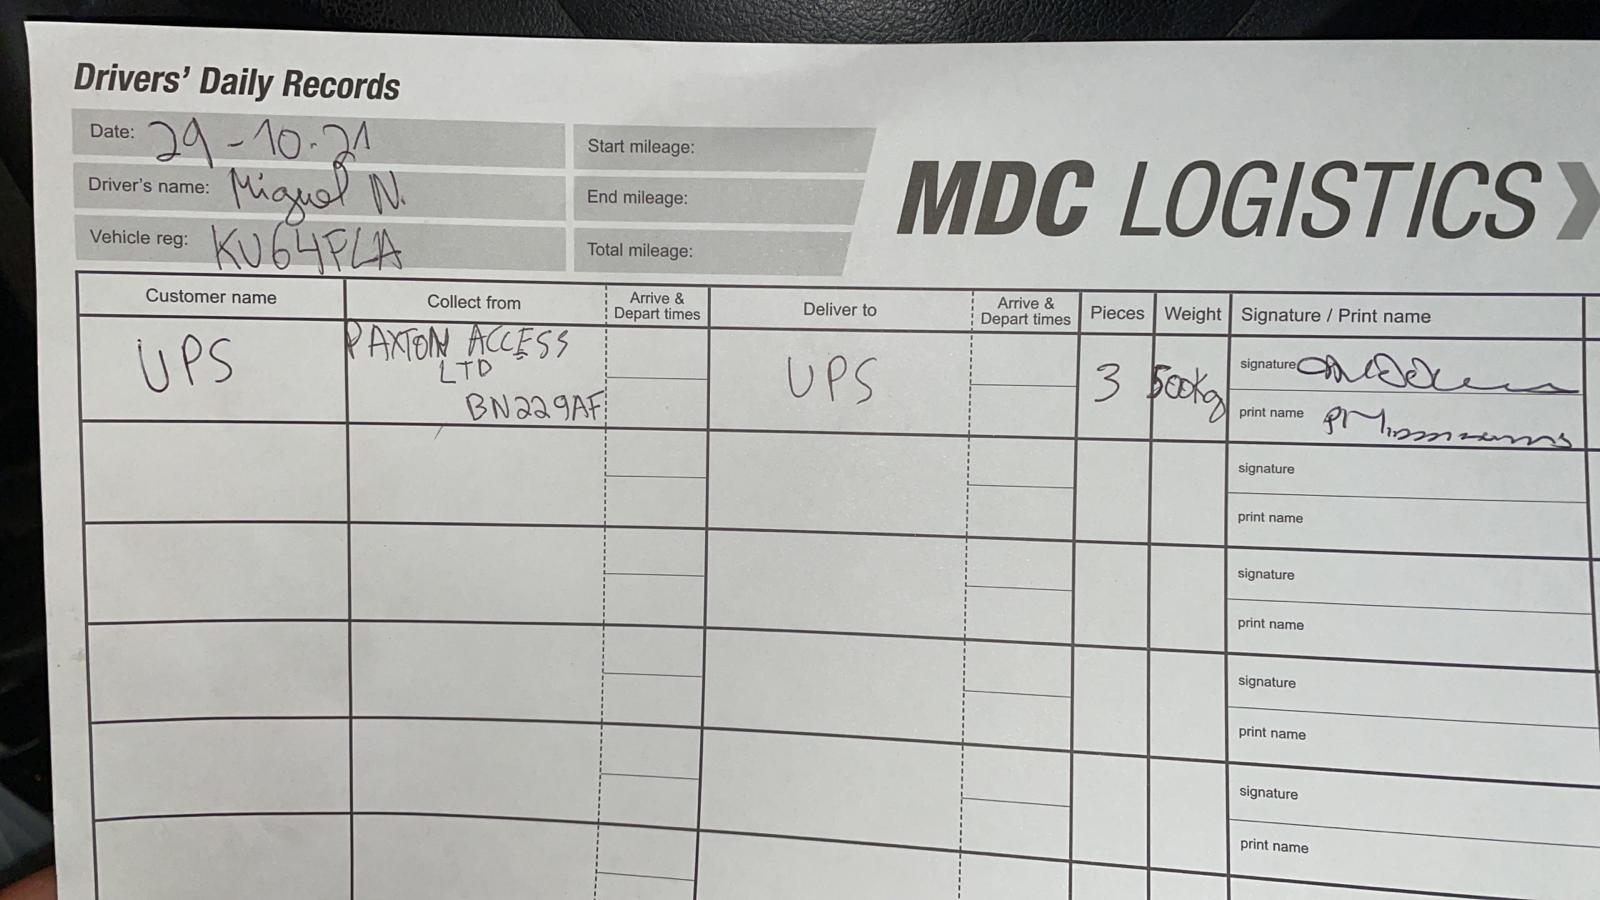 Drivers' Daily Records
Date: 29-10.21
Driver's name: Miguel N.
Vehicle reg: KV64PLA
Start mileage:
End mileage:
Total mileage:
MDC LOGISTICS
Customer name Collect from Arrive & Depart times Deliver to Arrive & Depart times Pieces Weight Signature / Print name
UPS PAXTON ACCESS UPS 3 500Kg signature
LTD
BN229AF print name
signature
print name
signature
print name
signature
print name
signature
print name